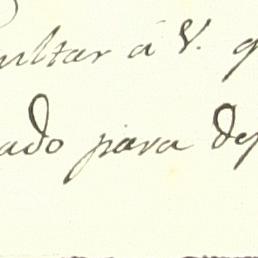 ultar á V. q
ado para de